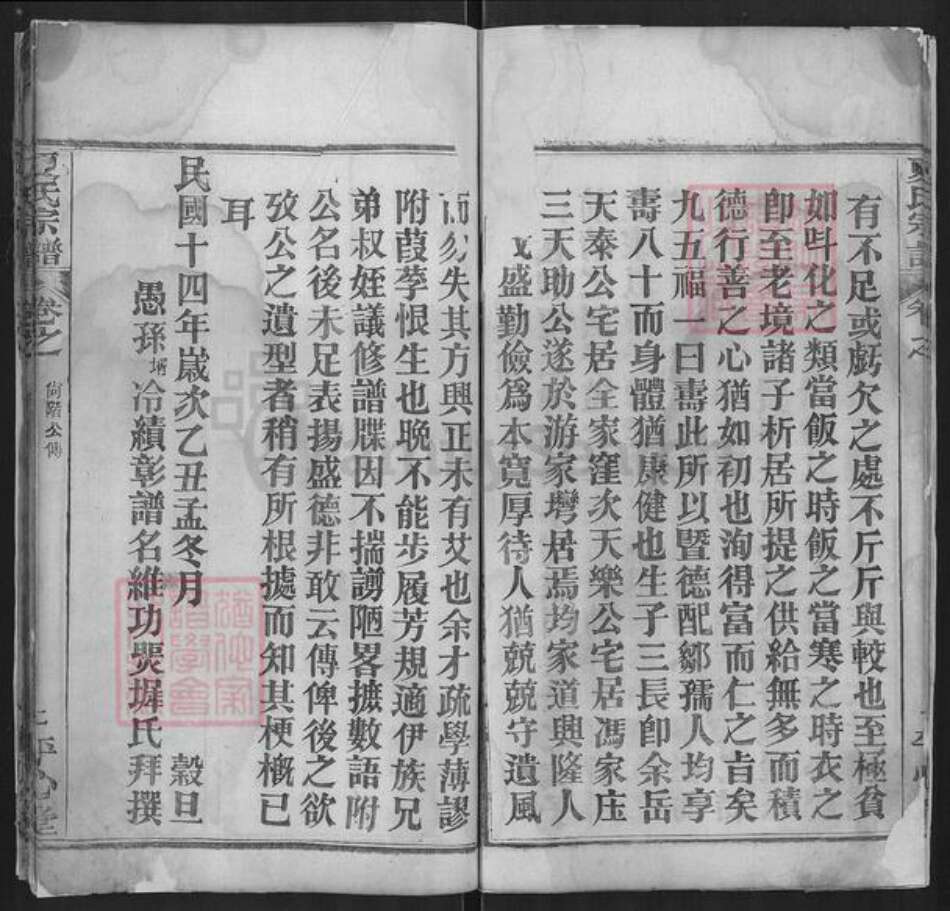 有不足或虧欠之處不斤斤與較也至極貧
如吽化之類當飯之時飯之當寒之時衣之
卽至老境諸子析居所提之供給無多而積
德行善之心猶如初也洵得富而仁之旨矣
九五福一曰壽此所以暨德配鄒孺人均享
壽八十而身體猶康健也生子三長卽余岳
天泰公宅居全家窪次天樂公宅居馮家庄
三天助公遂於游家壪居焉均家道興隆人
盛勤儉爲本寬厚待人猶兢兢守遺風
而勿失其方興正未有艾也余才疏學薄謬
附葭莩恨生也晚不能步履芳規適伊族兄
弟叔姪議修譜牒因不揣謭陋畧摭數語附
公名後未足表揚盛德非敢云傳俾後之欲
攷公之遺型者稍有所根據而知其梗概已
耳
民國十四年嵗次乙丑孟冬月 穀旦
愚孫壻冷績彰譜名維功㷼墀氏拜撰
夏氏宗譜 卷之一 尙階公傳